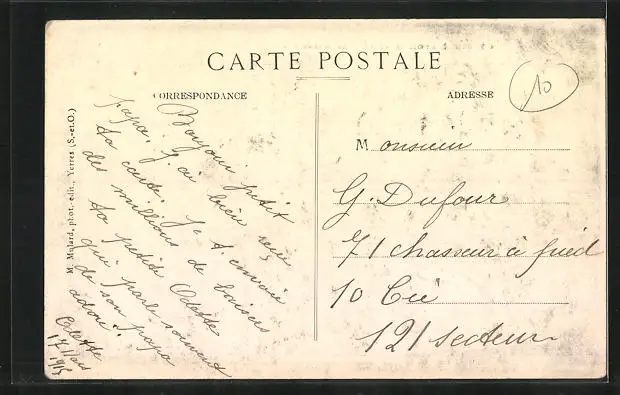 CARTE POSTALE
CORRESPONDANCE
ADRESSE
10
M. Mulard, phot.-édit., Yerres (S.-et-O.)
Bonjour petit
papa. J'ai bien reçu
ta carte. Je t'envoie
des millions de baisers
ta petite Odette
qui parle souvent
de son papa
Odette
17 Mars
1915
Monsieur
G. Dufour
71 chasseur à pied
10 Cie
121 secteur